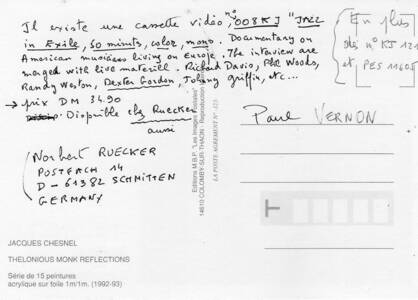 Il existe une cassette vidéo, n° 008KJ "JAZZ
in Exile, 50 minuts, color, mono. Documentary on
American musicians living on Europe. The interview are
merged with live materiell. Richard Davis, Phil Woods,
Randy Weston, Dexter Gordon, Johnny Griffin, etc...
→ prix DM 34.90
Disponible chez Ruecker
aussi
Norbert RUECKER
POSTFACH 14
D-61382 SCHMITTEN
GERMANY
En plus
des n° KJ 121
et PES 11605
Paul VERNON
Editions M.B.P. "Les Images Modèles"
14610 COLOMBY-SUR-THAON - Reproduction
LA POSTE AGREMENT N°
JACQUES CHESNEL
THELONIOUS MONK REFLECTIONS
Série de 15 peintures
acrylique sur toile 1m/1m. (1992-93)